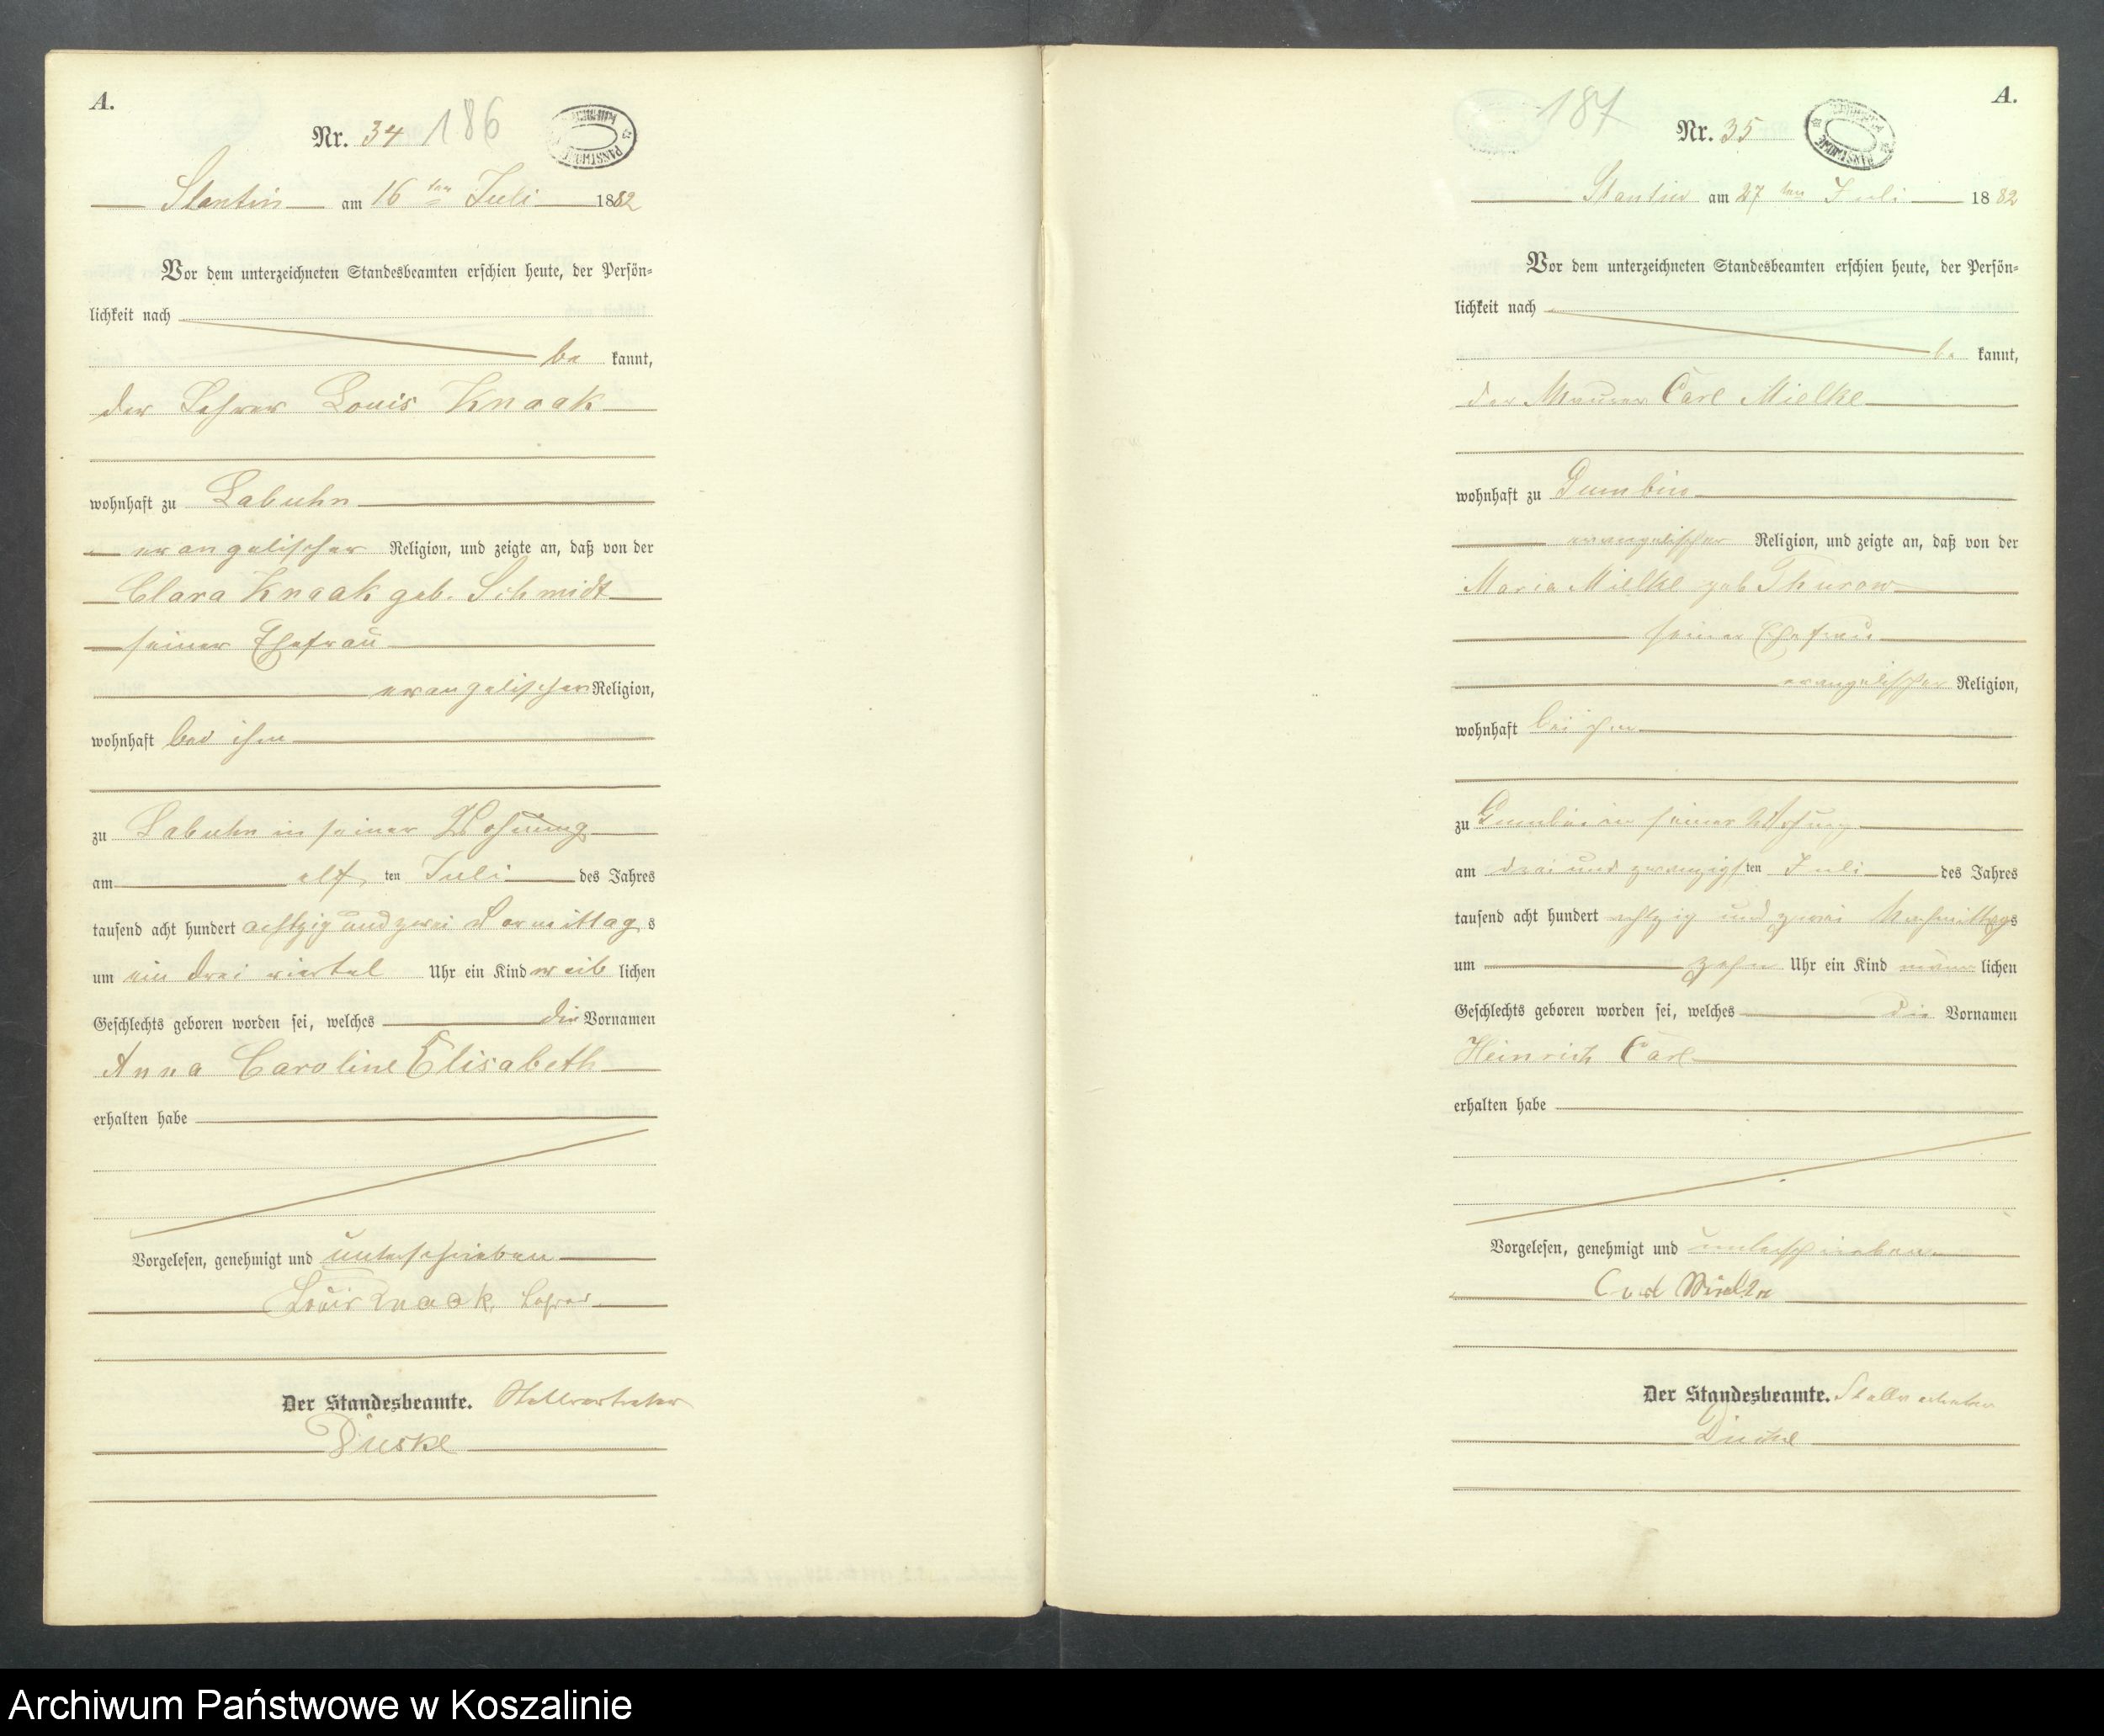 A.
Nr. 34 186
Stantin am 16ten Juli 1882
Vor dem unterzeichneten Standesbeamten erschien heute, der Persön-
lichkeit nach
be kannt,
der Lehrer Louis Knaak
wohnhaft zu Labuhn
evangelischer Religion, und zeigte an, daß von der
Clara Knaak geb. Schmidt
seiner Ehefrau
evangelischer Religion,
wohnhaft bei ihm
zu Labuhn in seiner Wohnung
am elf ten Juli des Jahres
tausend acht hundert achtzig und zwei Vormittag s
um ein drei viertel Uhr ein Kind weib lichen
Geschlechts geboren worden sei, welches die Vornamen
Anna Caroline Elisabeth
erhalten habe
Vorgelesen, genehmigt und unterschrieben
Louis Knaak, Lehrer
Der Standesbeamte. Stellvertreter
Düske
A.
187
Nr. 35
Stantin am 27 ten Juli 1882
Vor dem unterzeichneten Standesbeamten erschien heute, der Persön-
lichkeit nach
be kannt,
der Maurer Carl Mielke
wohnhaft zu Gumbin
evangelischer Religion, und zeigte an, daß von der
Maria Mielke geb Thurow
seiner Ehefrau
evangelischer Religion,
wohnhaft bei ihm
zu Gumbin in seiner Wohnung
am drei und zwanzigsten Juli des Jahres
tausend acht hundert achtzig und zwei Nachmittags
um zehn Uhr ein Kind männ lichen
Geschlechts geboren worden sei, welches die Vornamen
Heinrich Carl
erhalten habe
Vorgelesen, genehmigt und unterschrieben
Carl Mielke
Der Standesbeamte. Stellvertreter
Düske
Archiwum Państwowe w Koszalinie